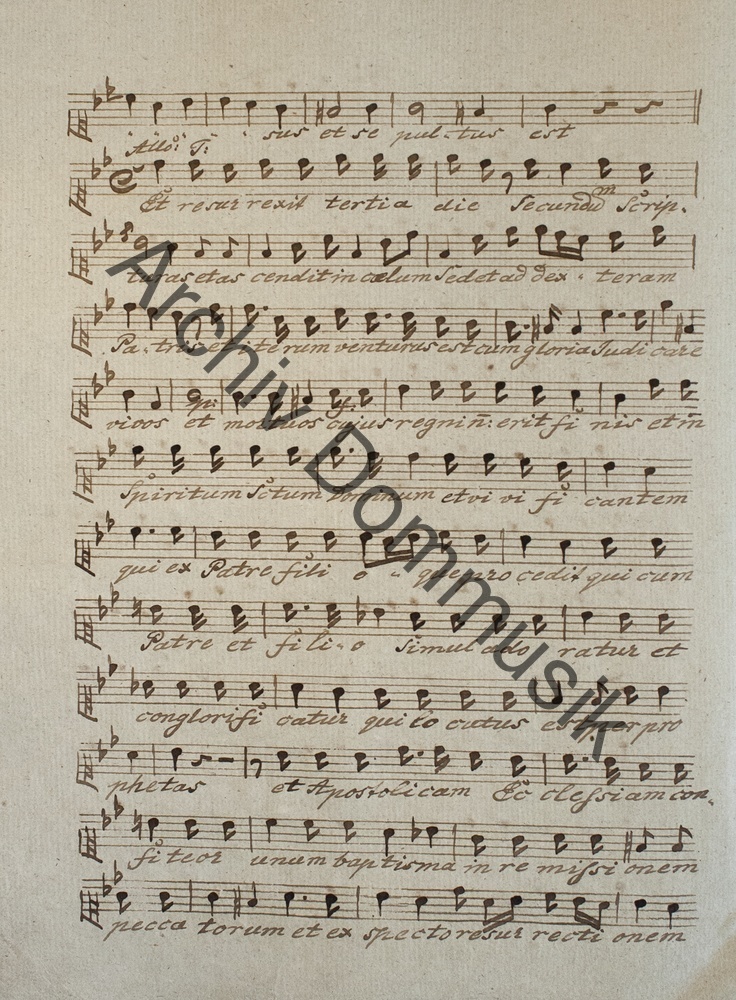 sus et se pul-tus est
Allo: T:
Et resur rexit tertia die Secundum Scrip-
turas et as cendit in cælum Sedet ad dex - teram
Pa-tris et ite rum venturus est cum gloria Judi care
p: f:
vivos et mortuos cujus regni ñ: erit fi nis et in
Spiritum Sctum Dominum et vi vi fi cantem
qui ex Patre fili o - que pro cedit qui cum
Patre et fi li-o Simul ado ratur et
conglorifi catur qui lo cutus est per pro
phetas et Apostolicam Ec clesiam con-
fi teor unum baptisma in re missi onem
pecca torum et ex specto resur recti onem
Archiv Dommusik